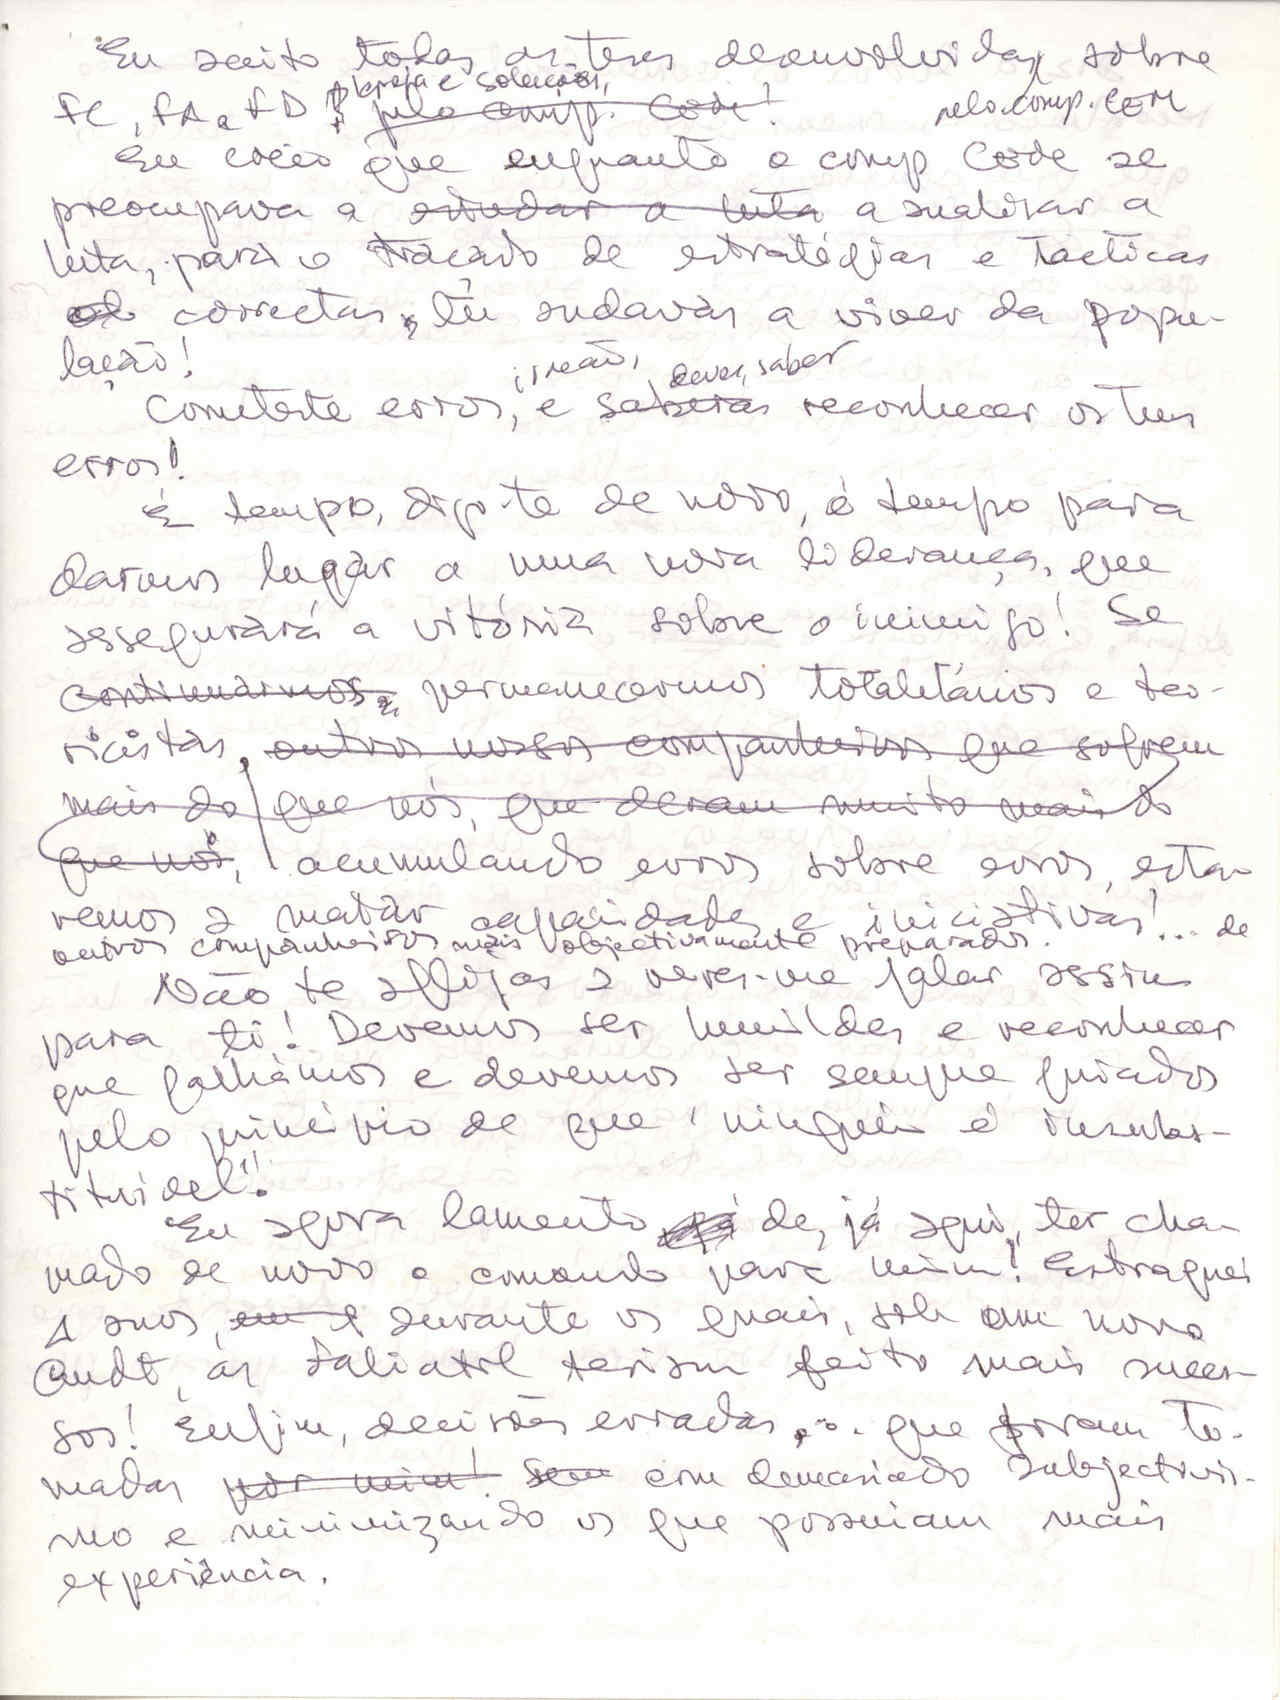 Eu aceito todas as teses desenvolvidas sobre
Igreja e soluções,
FC, FA e FD pelo comp. Code! pelo comp. COM
Eu creio que enquanto o comp Code se
preocupava a estudar a luta a analisar a
luta, para o traçado de estratégias e tácticas
correctas, tu andavas a viver da popu-
lação!
irmão, deves saber
Cometeste erros, e saberás reconhecer os teus
erros!
É tempo, digo-te de novo, é tempo para
darmos lugar a uma nova liderança, que
assegurará a vitória sobre o inimigo! Se
continuarmos permanecermos totalitários e teo-
ricistas, outros nossos companheiros que sofrem
mais do que nós, que deram muito mais do
que nós, acumulando erros sobre erros, esta-
remos a matar capacidades e iniciativas!... de
outros companheiros mais objectivamente preparados.
Não te aflijas a veres-me falar assim
para ti! Devemos ser humildes e reconhecer
que falhámos e devemos ser sempre guiados
pelo princípio de que "ninguém é insubs-
tituível"!
Eu agora lamento de, já aqui, ter cha-
mado de novo o comando para mim! Estraguei
4 anos, durante os quais, sob um novo
Cmdt, as Faliatil teriam feito mais suces-
sos! Enfim, decisões erradas... que foram to-
madas por mim! Sem com demasiado subjectivis-
mo e minimizando os que possuiam mais
experiência.